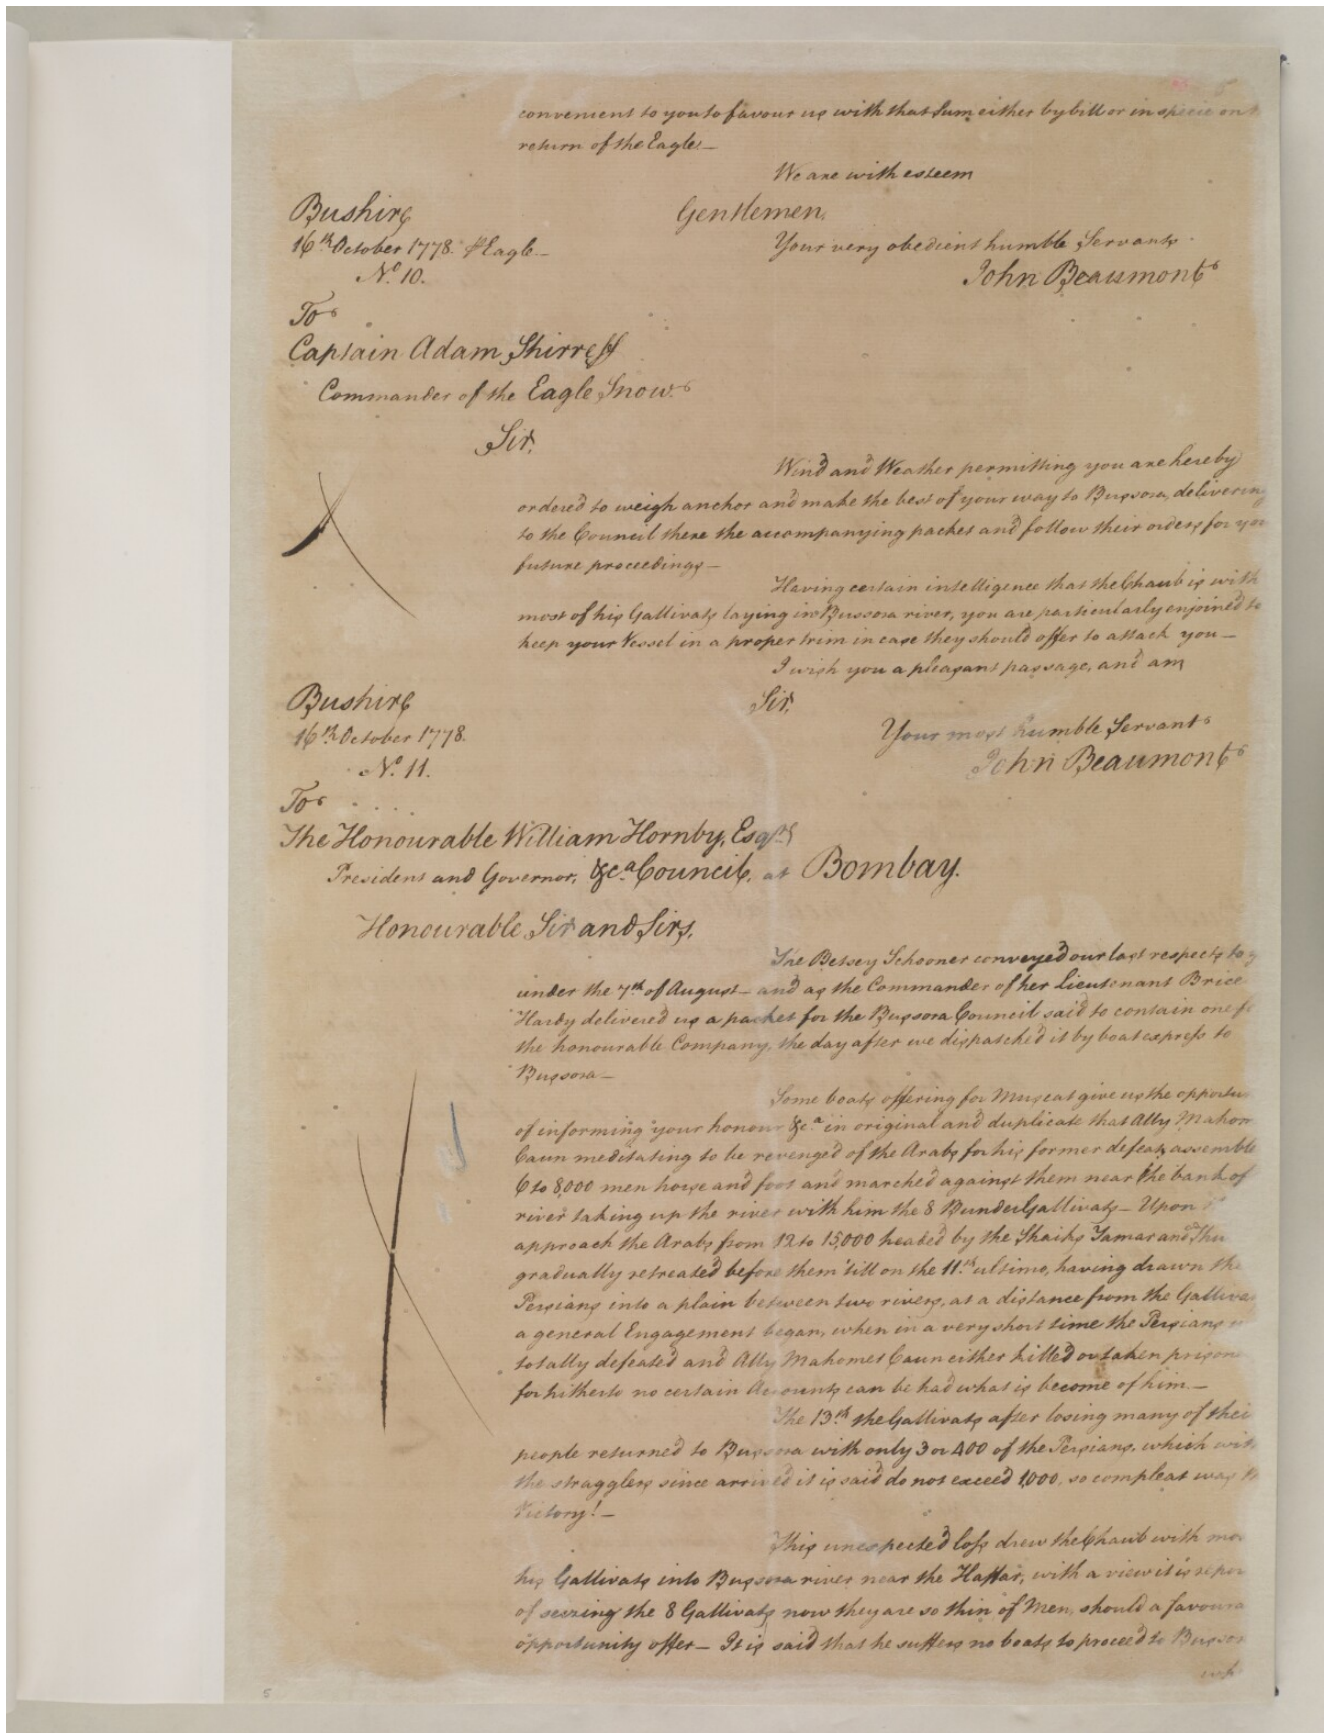 5
convenient to you to favour us with that Sum either by bill or in specie on
return of the Eagle —
We are with esteem
Gentlemen,
Bushire
16th October 1778. ⅌ Eagle —
Your very obedient humble Servants
No. 10.
John Beaumont
To
Captain Adam Shirreff
Commander of the Eagle Snow.
Sir,
Wind and Weather permitting you are hereby
ordered to weigh anchor and make the best of your way to Bussora, delivering
to the Council there the accompanying packet and follow their orders for
future proceedings —
Having certain intelligence that the Chaub is with
most of his Gallivats laying in Bussora river, you are particularly enjoined to
keep your Vessel in a proper trim in case they should offer to attack you —
I wish you a pleasant passage, and am
Bushire
Sir,
16th October 1778.
Your most humble Servant
No. 11.
John Beaumont
To
The Honourable William Hornby, Esqr.
President and Governor, &ca. Council, at Bombay.
Honourable Sir and Sirs,
The Betsey Schooner conveyed our last respects to
under the 7th of August — and as the Commander of her Lieutenant Brice
Hardy delivered us a packet for the Bussora Council said to contain one
the honourable Company, the day after we dispatched it by boat express to
Bussora —
Some boats offering for Muscat give us the opportu
of informing your honour &ca. in original and duplicate that Ally Mahom
Caun meditating to be revenged of the Arabs for his former defeat, assemble
6 to 8,000 men horse and foot and marched against them near the bank of
river taking up the river with him the 8 Bunder Gallivats — Upon
approach the Arabs from 12 to 15,000 headed by the Shaiks Tamar and
gradually retreated before them 'till on the 11th ultimo, having drawn the
Persians into a plain between two rivers, at a distance from the Galliva
a general Engagement began, when in a very short time the Persians
totally defeated and Ally Mahomet Caun either killed or taken prison
for hitherto no certain Accounts can be had what is become of him —
The 13th the Gallivats after losing many of thei
people returned to Bussora with only 3 or 400 of the Persians, which wit
the stragglers since arrived it is said do not exceed 1,000, so compleat was
Victory! —
This unexpected loss drew the Chaub with mo
his Gallivats into Bussora river near the Haffar, with a view it is repor
of seizing the 8 Gallivats now they are so thin of Men, should a favoura
opportunity offer — It is said that he suffers no boats to proceed to Bussor
5